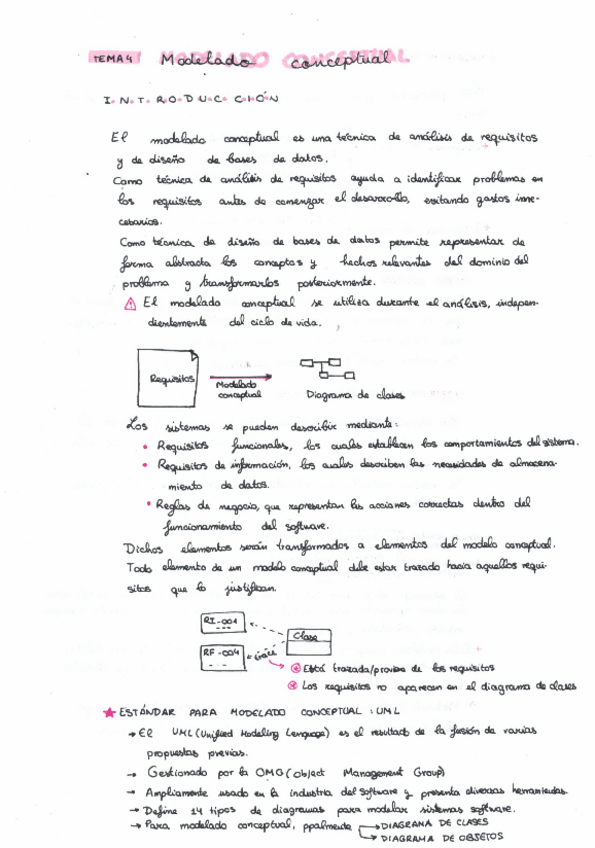 TEMA 4 Modelado conceptual
INTRODUCCIÓN
El modelado conceptual es una técnica de análisis de requisitos
y de diseño de bases de datos.
Como técnica de análisis de requisitos ayuda a identificar problemas en
los requisitos antes de comenzar el desarrollo, evitando gastos inne-
cesarios.
Como técnica de diseño de bases de datos permite representar de
forma abstracta los conceptos y hechos relevantes del dominio del
problema y transformarlos posteriormente.
⚠ El modelado conceptual se utiliza durante el análisis, indepen-
dientemente del ciclo de vida.
Requisitos
Modelado
conceptual
Diagrama de clases
Los sistemas se pueden describir mediante:
• Requisitos funcionales, los cuales establecen los comportamientos del sistema.
• Requisitos de información, los cuales describen las necesidades de almacena-
miento de datos.
• Reglas de negocio, que representan las acciones correctas dentro del
funcionamiento del software.
Dichos elementos serán transformados a elementos del modelo conceptual.
Todo elemento de un modelo conceptual debe estar trazado hacia aquellos requi-
sitos que lo justifican.
RI-001
Clase
RF-004
⊛ Está trazada/proviene de los requisitos
⊛ Los requisitos no aparecen en el diagrama de clases
★ ESTÁNDAR PARA MODELADO CONCEPTUAL: UML
→ El UML (Unified Modeling Language) es el resultado de la fusión de varias
propuestas previas.
→ Gestionado por la OMG (Object Management Group)
→ Ampliamente usado en la industria del software y presenta diversas herramientas.
→ Define 14 tipos de diagramas para modelar sistemas software.
→ Para modelado conceptual, ppalmente → DIAGRAMA DE CLASES
→ DIAGRAMA DE OBJETOS